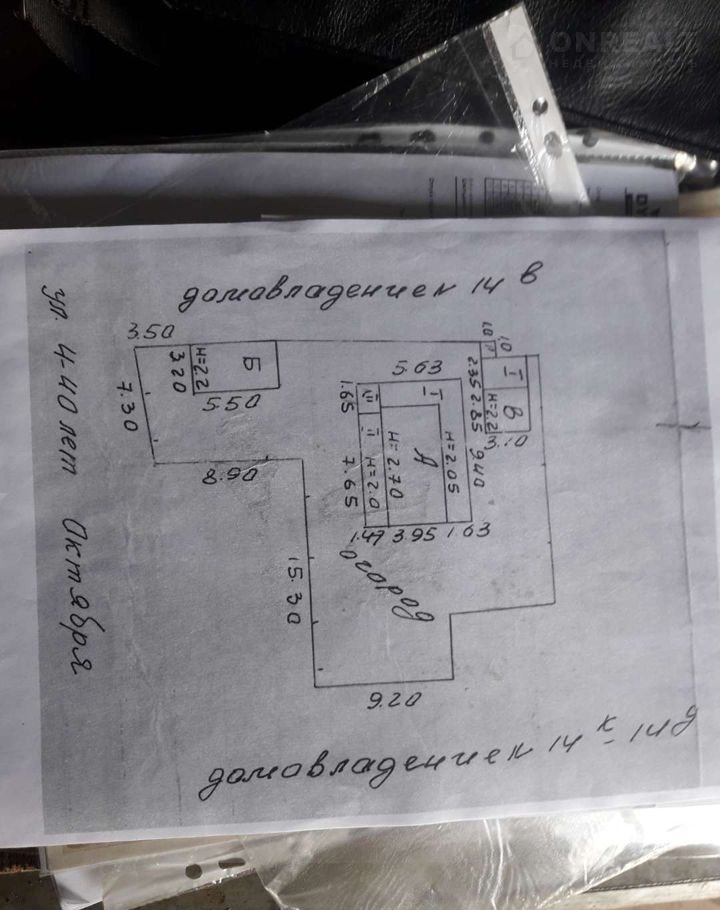 ONREALT
НЕДВИЖИМОСТЬ
домовладением 14 в
3.50
Б
H=2.2
3.20
5.50
7.30
8.90
5.63
1.0
1.0
Г
I
В
H=2.2
2.35
2.85
3.10
9.40
1.65
III
I
А
II
H=2.0
H=2.70
H=2.05
7.65
1.47
3.95
1.63
15.30
9.20
ул. 4-40 лет Октября
домовладением 14 к - 14д